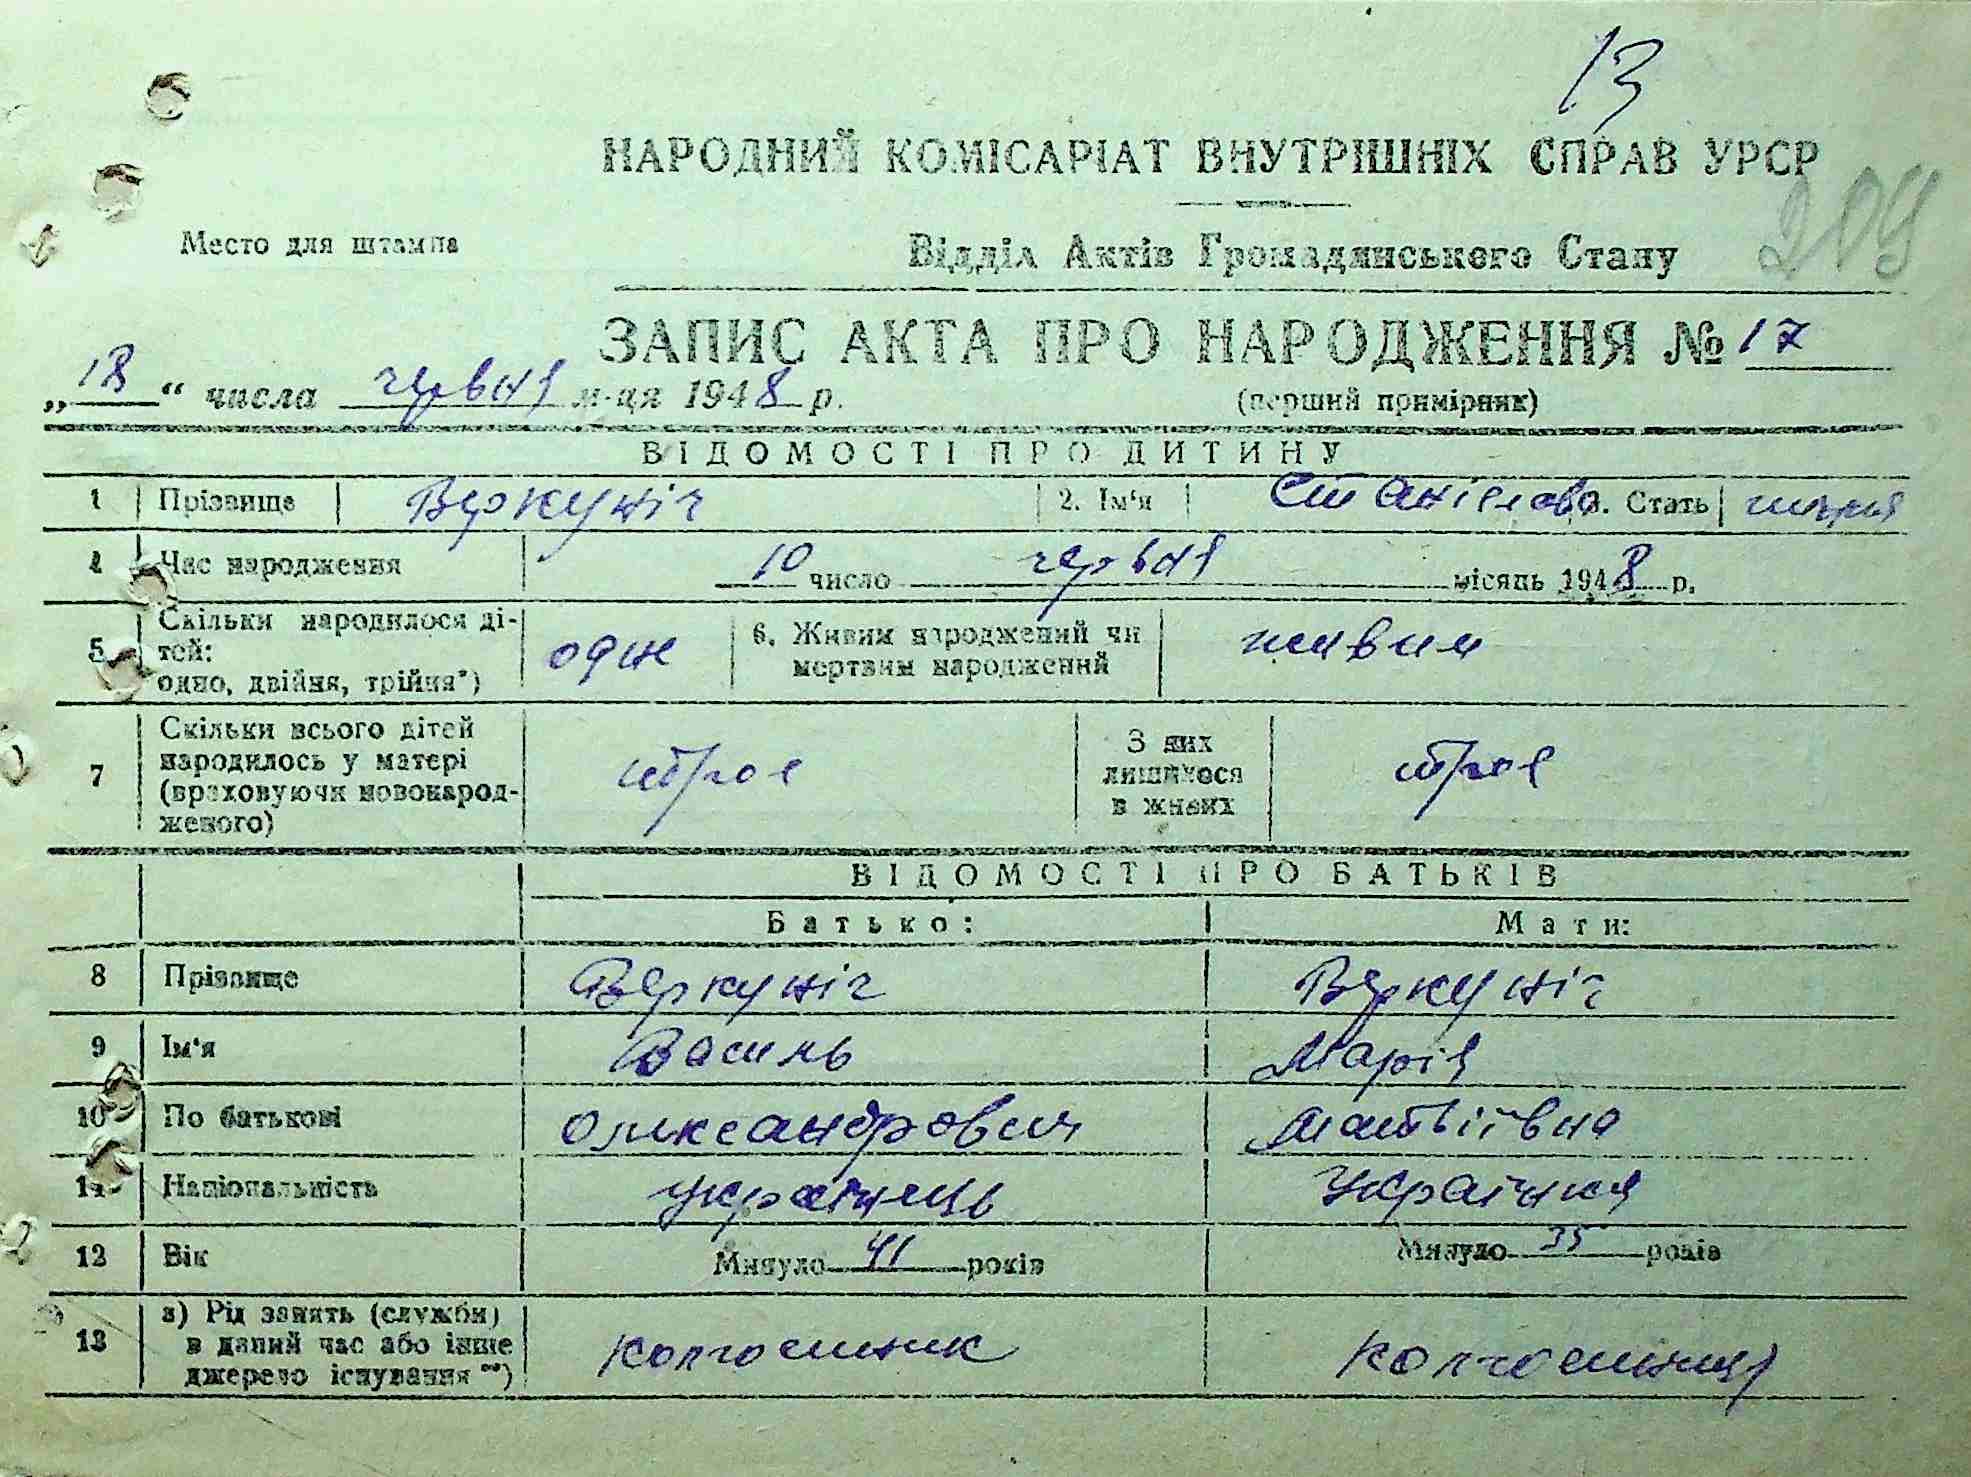 13
НАРОДНИЙ КОМІСАРІАТ ВНУТРІШНІХ СПРАВ УРСР
209
Место для штампа
Відділ Актів Громадянського Стану
ЗАПИС АКТА ПРО НАРОДЖЕННЯ № 17
„18“ числа червня м-ця 1948 р. (перший примірник)
ВІДОМОСТІ ПРО ДИТИНУ
1 Прізвище Веркуніч 2. Ім'я Станіслава 3. Стать
4 Час народження 10 число червня місяць 1948 р.
5 Скільки народилося ді-
тей:
одно, двійня, трійня*) одне 6. Живим народжений чи
мертвим народжений живим
7 Скільки всього дітей
народилось у матері
(враховуючи новонарод-
женого) троє З них
лишилося
в живих троє
ВІДОМОСТІ ПРО БАТЬКІВ
Батько: Мати:
8 Прізвище Веркуніч Веркуніч
9 Ім'я Василь Марія
10 По батькові Олександрович Матвіївна
11 Національність українець Українка
12 Вік Минуло 41 років Минуло 35 років
13 а) Рід занять (служби)
в даний час або інше
джерело існування **) колгоспник колгоспниця